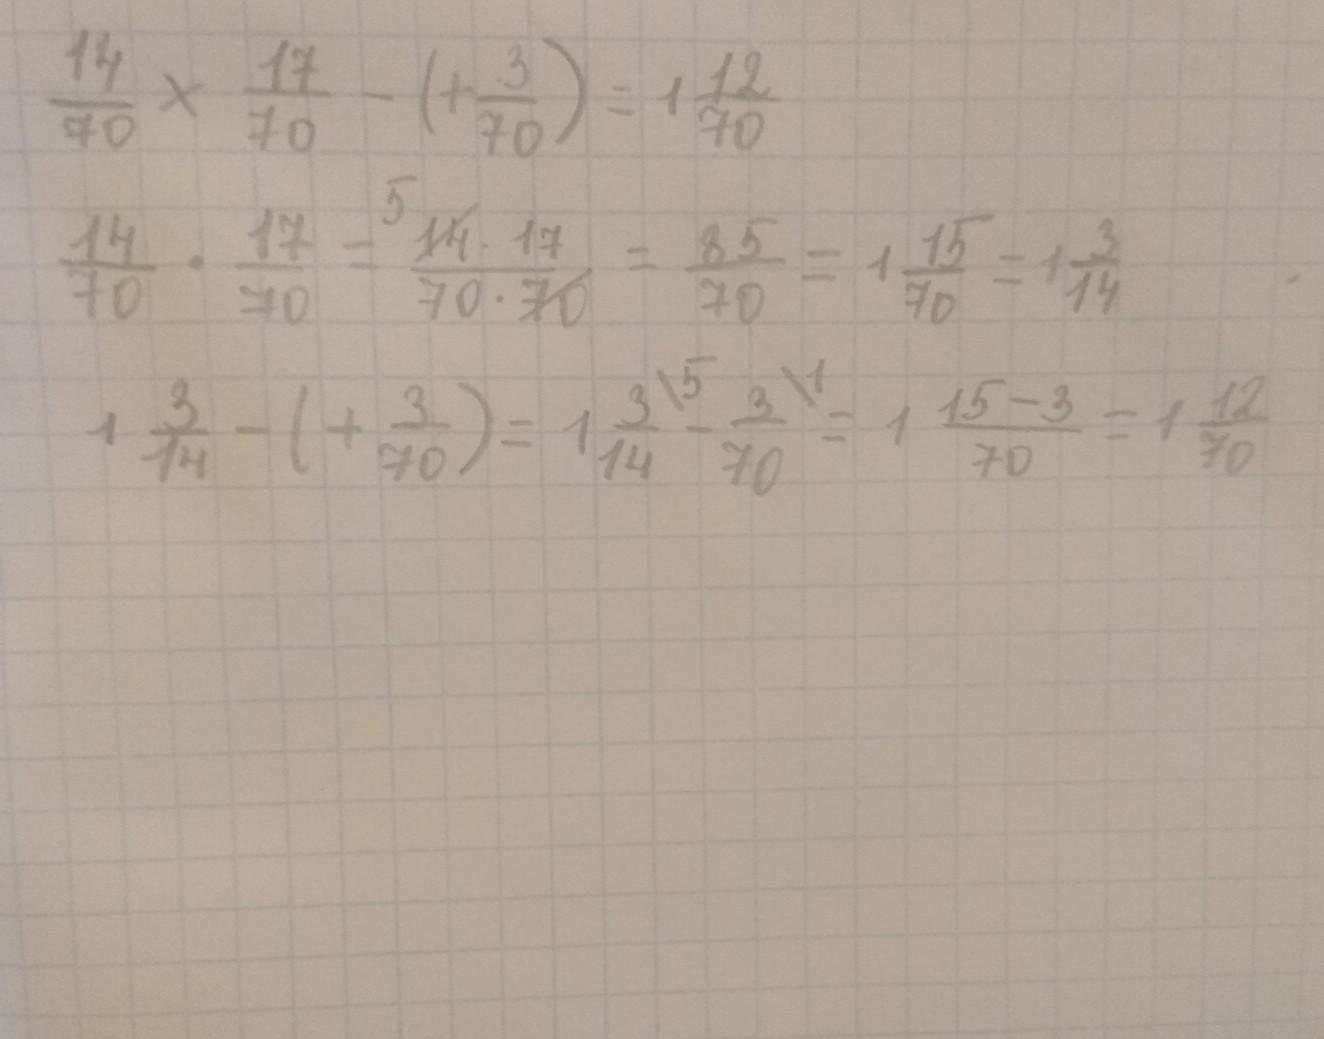 14/70 × 17/70 - (+3/70) = 1 12/70
14/70 · 17/70 = 5 14·17/70·70 = 85/70 = 1 15/70 = 1 3/14
1 3/14 - (+3/70) = 1 3/14 \5 - 3/70 \1 = 1 15-3/70 = 1 12/70